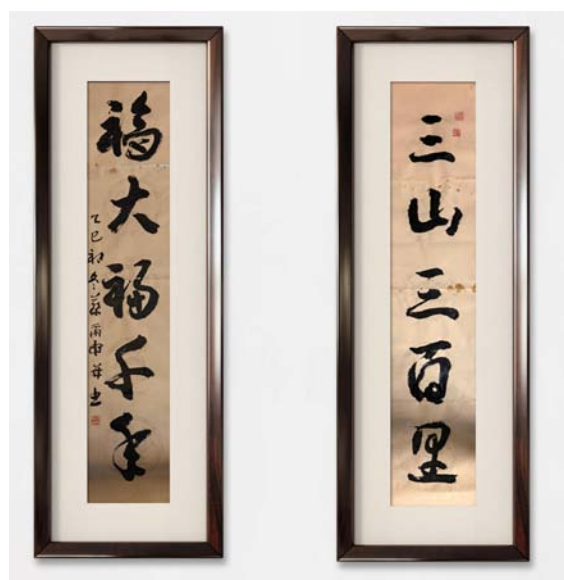 三山三百里
福大福千年
乙巳初冬蔡
书